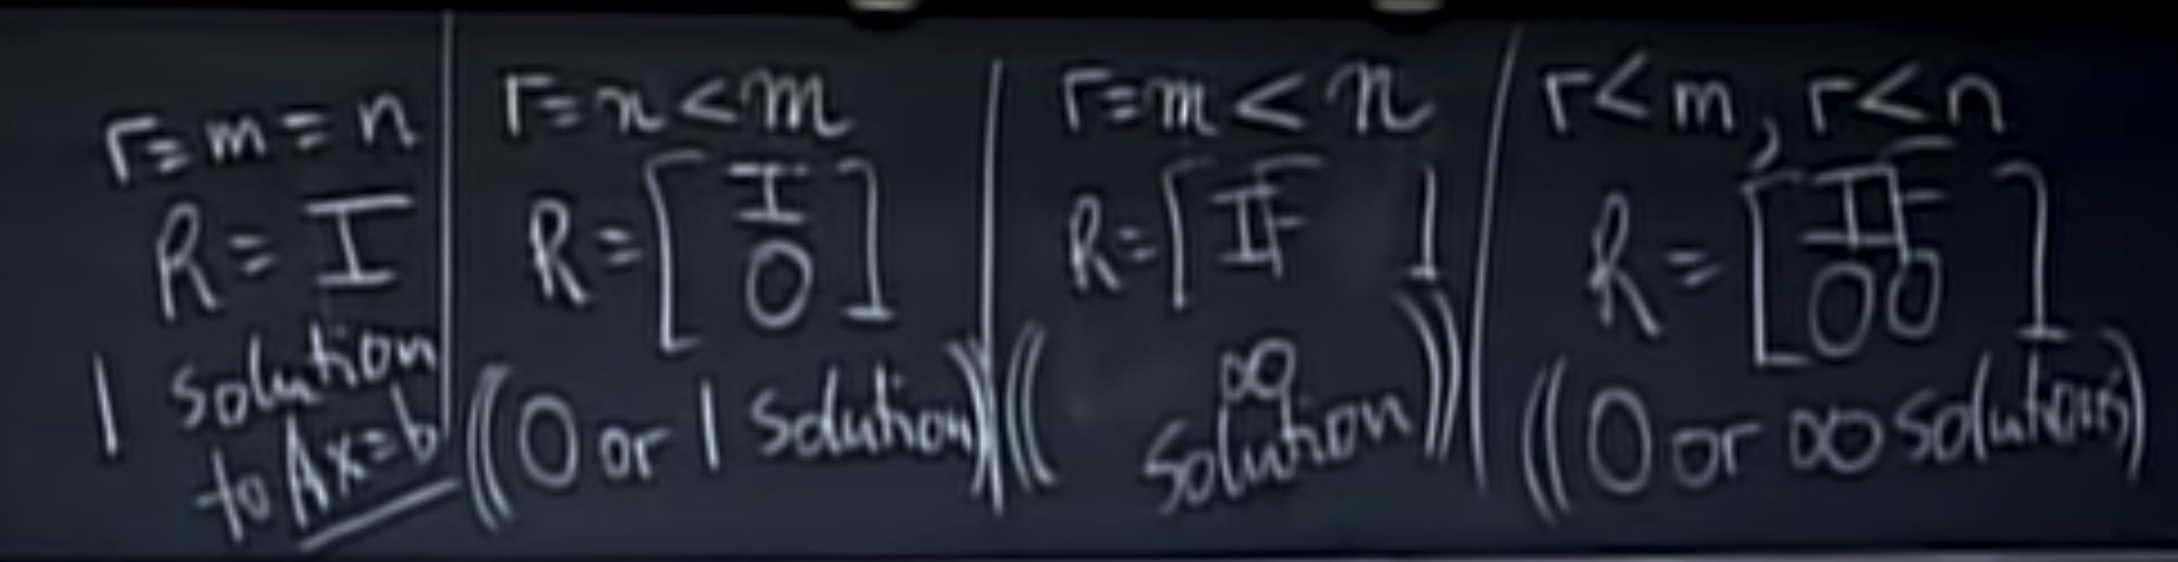 r=m=n
R=I
1 solution
to Ax=b
r=n<m
R=[I
0]
(0 or 1 solution)
r=m<n
R=[IF]
(∞
solution)
r<m, r<n
R=[IF
00]
(0 or ∞ solutions)